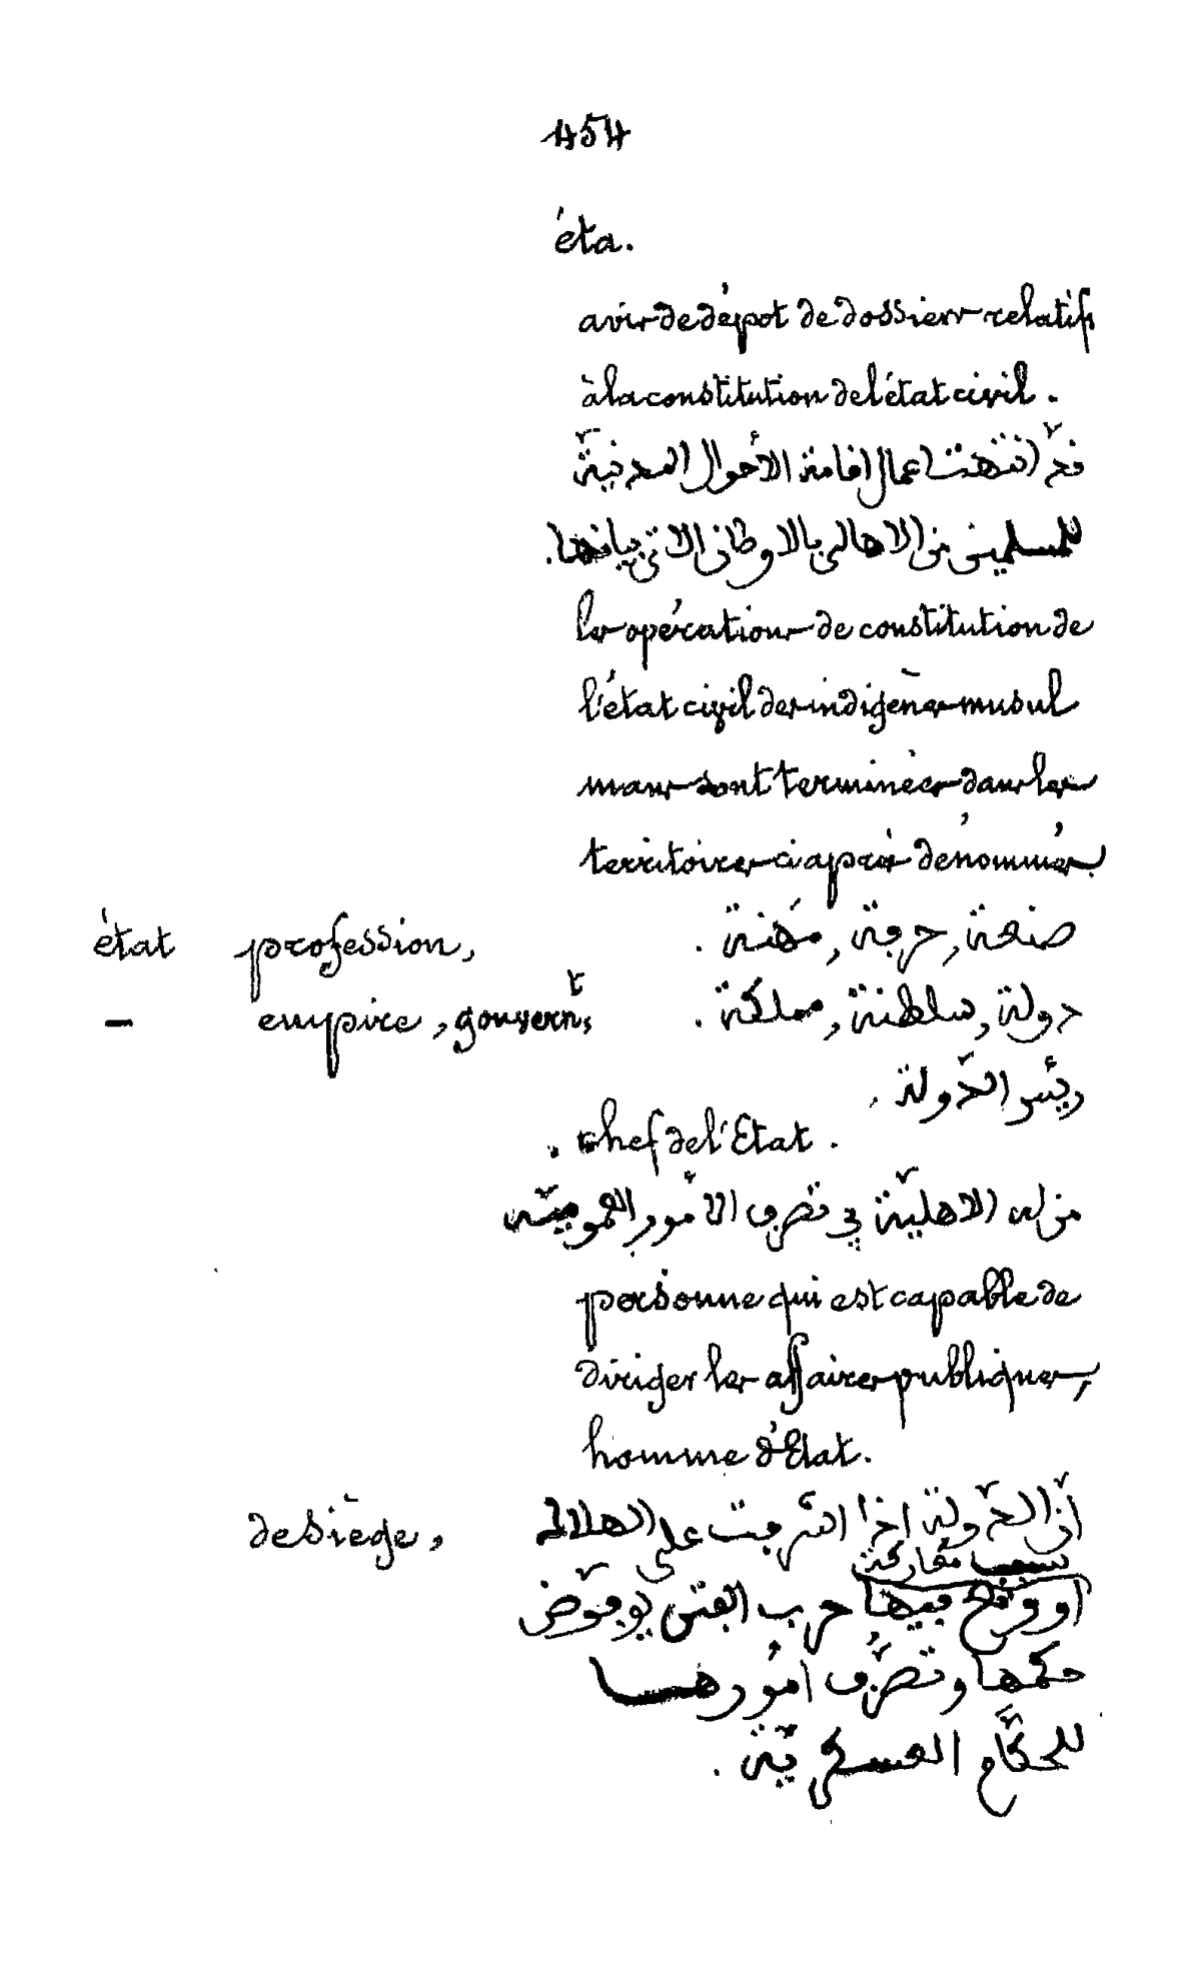 454
éta.
avis de dépot de dossiers relatifs
à la constitution de l'état civil.
قد انتهت اعمال اقامة الأحوال المدنيّة
للمسلمين من الاهالى بالاوطان الاتى بيانها.
les opérations de constitution de
l'état civil des indigènes musul
mans sont terminées dans les
territoires ci après dénommés.
état profession, صنعة, حرفة, مهنة.
— empire, gouvern.t, دولة, سلطنة, مملكة.
ريئس الدّولة.
chef de l'Etat.
من له الاهليّة في تصرف الأمور العموميّة
personne qui est capable de
diriger les affaires publiques,
homme d'Etat.
de siège, أنّ الدّولة اذا اشرفت على الهلاك
بسبب مفاركة
او وقع فيها حرب الفتن يوفوّض
حكمها وتصرّف امورها
للحكّام العسكريّة.